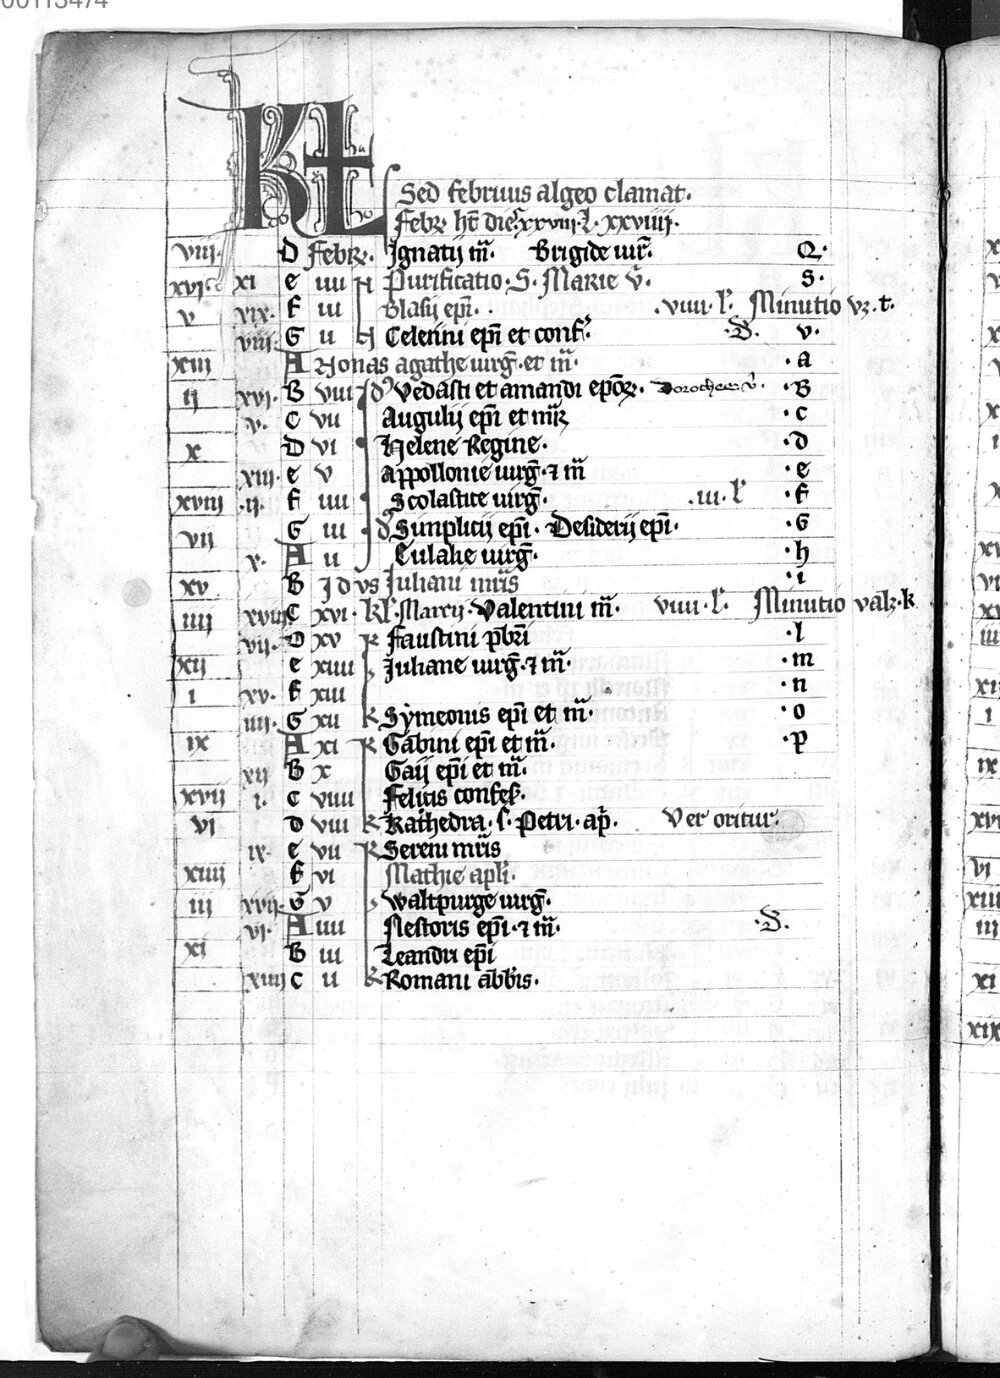 00113474
KL
Sed februus algeo clamat.
Febr. ht die xxviii. L. xxviiii.
viii. D Febr. Ignatij m̄. Brigide uir̄. Q.
xvi xi e iiii N Purificatio. S. Marie v̄. S.
v xix. F iii Blasij ep̄i. . .viiii. l'. Minutio vz. t.
viii. G ii N Celerini ep̄i et conf. .S. v.
xiii A Nonas agathe uirḡ. et m̄. .a
ii xvi. B viii Id' Vedasti et amandi epōr. Dorothee v̄. .B
v. C vii Augulij ep̄i et m̄r .c
x D vi Helene Regine. .d
xiii. e v Appollonie uirḡ. ⁊ m̄ .e
xviii .ii. F iiii Scolastice uirḡ. .iii. l' .F
vii G iii d' Simplicij ep̄i. Desiderij ep̄i. .G
x. A ii Eulalie uirḡ. .h
xv B Idvs Juliani mr̄is .i
iiii xviii C xvi. kl'. Marcij. Valentini m̄. viiii. l'. Minutio valz. k
vii. D xv k Faustini pb̄ri .l
xii e xiiii Juliane uirḡ. ⁊ m̄. .m
i xv. F xiii .n
iiii. G xii k Symeonis ep̄i et m̄. .o
ix A xi k Gabini ep̄i et m̄. .p
xii B x Gaij ep̄i et m̄.
xvii i. C viiii Felicis confes.
vi d viii k Kathedra. s. Petri. ap̄. Ver oritur.
ix. e vii k Sereni mr̄is
xiiii F vi Mathie apl'i.
iii xvii. G v Waltpurge uirḡ.
vi. A iiii Nestoris ep̄i. ⁊ m̄. .S.
xi B iii Leandri ep̄i
xiiii C ii k Romani abb̄is.